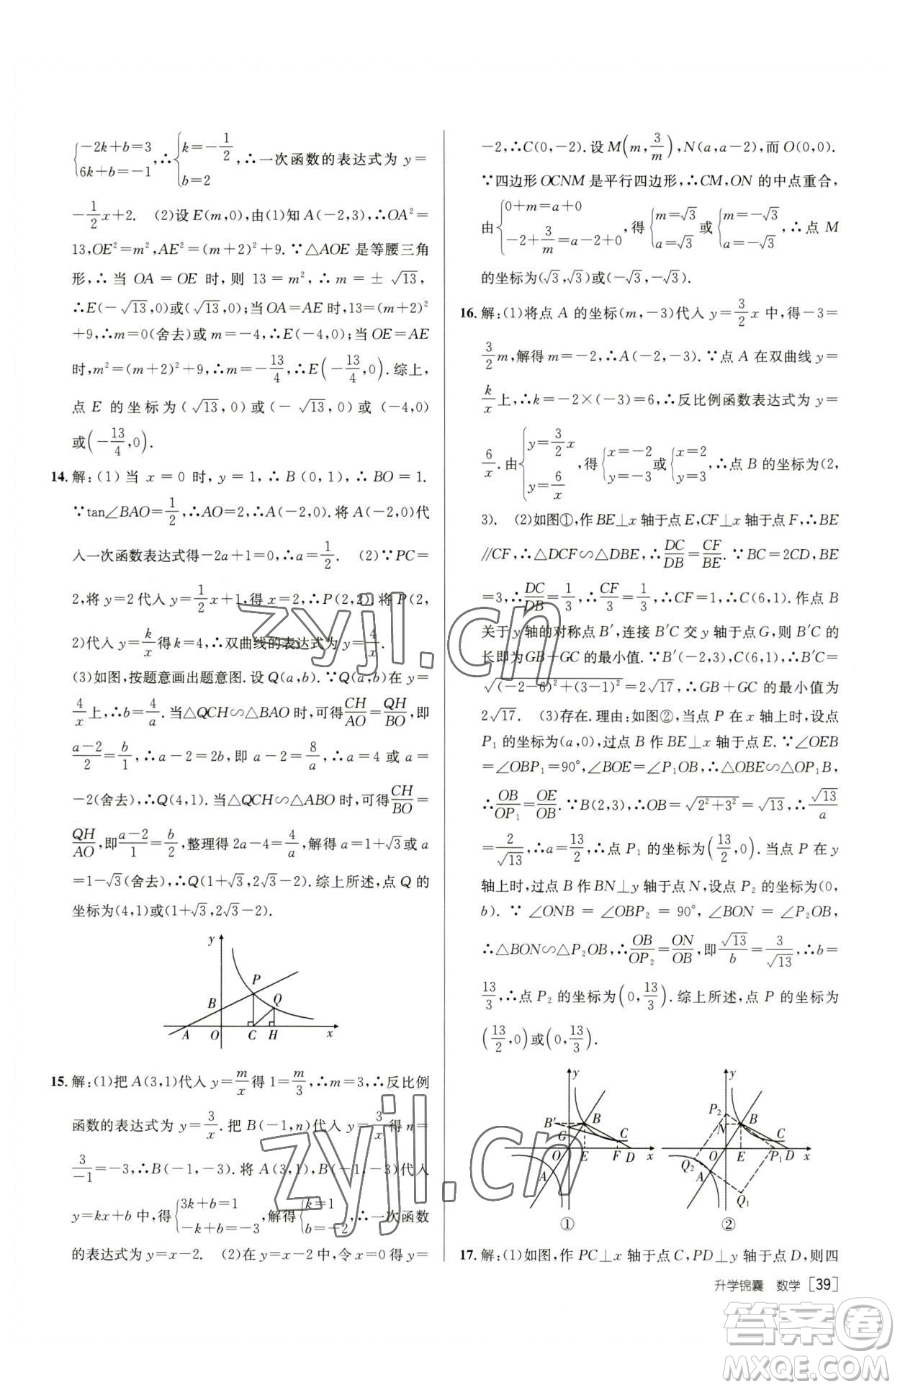 {-2k+b=3 6k+b=-1,∴{k=-1/2 b=2,∴一次函数的表达式为 y=
-1/2x+2. (2)设 E(m,0),由(1)知 A(-2,3),∴OA²=
13,OE²=m²,AE²=(m+2)²+9.∵△AOE 是等腰三角
形,∴当 OA=OE 时,则 13=m²,∴m=±√13,
∴E(-√13,0)或(√13,0);当 OA=AE 时,13=(m+2)²
+9,∴m=0(舍去)或 m=-4,∴E(-4,0);当 OE=AE
时,m²=(m+2)²+9,∴m=-13/4,∴E(-13/4,0).综上,
点 E 的坐标为(√13,0)或(-√13,0)或(-4,0)
或(-13/4,0).
14.解:(1)当 x=0 时,y=1,∴B(0,1),∴BO=1.
∵tan∠BAO=1/2,∴AO=2,∴A(-2,0).将 A(-2,0)代
入一次函数表达式得-2a+1=0,∴a=1/2. (2)∵PC=
2,将 y=2代入 y=1/2x+1,得 x=2,∴P(2,2).将 P(2,
2)代入 y=k/x得 k=4,∴双曲线的表达式为 y=4/x.
(3)如图,按题意画出题意图.设 Q(a,b).∵Q(a,b)在 y=
4/x上,∴b=4/a.当△QCH∽△BAO时,可得CH/AO=QH/BO,即
a-2/2=b/1,∴a-2=2b,即 a-2=8/a,∴a=4 或 a=
-2(舍去),∴Q(4,1).当△QCH∽△ABO 时,可得CH/BO=
QH/AO,即a-2/1=b/2,整理得 2a-4=4/a,∴a=1+√3或 a
=1-√3(舍去),∴Q(1+√3,2√3-2).综上所述,点 Q 的
坐标为(4,1)或(1+√3,2√3-2).
y
P
B
Q
A
O
C
H
x
15.解:(1)把 A(3,1)代入 y=m/x得 1=m/3,∴m=3,∴反比例
函数的表达式为 y=3/x.把 B(-1,n)代入 y=3/x得 n=
3/-1=-3,∴B(-1,-3).将 A(3,1),B(-1,-3)代入
y=kx+b 中,得{3k+b=1 -k+b=-3,∴{k=1 b=-2,∴一次函数
的表达式为 y=x-2. (2)在一次函数中,令 x=0得 y=
-2,∴C(0,-2).设 M(m,3/m),N(a,a-2),而 O(0,0).
∵四边形 OCNM 是平行四边形,∴CM,ON 的中点重合,
由{0+m=a+0 -2+3/m=a-2+0,得{m=√3 a=√3或{m=-√3 a=-√3,∴点 M
的坐标为(√3,√3)或(-√3,-√3).
16.解:(1)将点 A 的坐标(m,-3)代入 y=3/2x 中,得-3=
3/2m,解得 m=-2,∴A(-2,-3).∵点 A 在双曲线 y=
k/x上,∴k=-2×(-3)=6,∴反比例函数表达式为 y=
6/x.由{y=3/2x y=6/x,得{x=-2 y=-3或{x=2 y=3,∴点 B 的坐标为(2,
3). (2)如图①,作 BE⊥x 轴于点 E,CF⊥x 轴于点 F,∴BE
∥CF,∴△DCF∽△DBE,∴DC/DB=CF/BE.∵BC=2CD,BE
=3,∴DC/DB=1/3,∴CF/3=1/3,∴CF=1,∴C(6,1).作点 B
关于 y 轴的对称点 B′,连接 B′C 交 y 轴于点 G,则 B′C 的
长即为 GB+GC 的最小值.∵B′(-2,3),C(6,1),∴B′C=
√(-2-6)²+(3-1)²=2√17,∴GB+GC 的最小值为
2√17. (3)存在.理由:如图②,当点 P 在 x 轴上时,设点
P₁的坐标为(a,0),过点 B 作 BE⊥x 轴于点 E.∵∠OEB
=∠OBP₁=90°,∠BOE=∠P₁OB,∴△OBE∽△OP₁B,
∴OB/OP₁=OE/OB.∵B(2,3),∴OB=√2²+3²=√13,∴√13/a
=2/√13,∴a=13/2,∴点 P₁ 的坐标为(13/2,0).当点 P 在 y
轴上时,过点 B 作 BN⊥y 轴于点 N,设点 P₂的坐标为(0,
b).∵∠ONB=∠OBP₂=90°,∠BON=∠P₂OB,
∴△BON∽△P₂OB,∴OB/OP₂=ON/OB,即√13/b=3/√13,∴b=
13/3,∴点 P₂ 的坐标为(0,13/3).综上所述,点 P 的坐标为
(13/2,0)或(0,13/3).
y
B′
B
G
C
O
E
F
D
x
A
①
y
P₂
N
B
C
O
E
P₁
D
x
Q₂
A
Q₁
②
17.解:(1)如图,作 PC⊥x 轴于点 C,PD⊥y 轴于点 D,则四
升学锦囊 数学 [39]
zyjl.cn
zyjl.cn
答案圈
MXQE.COM